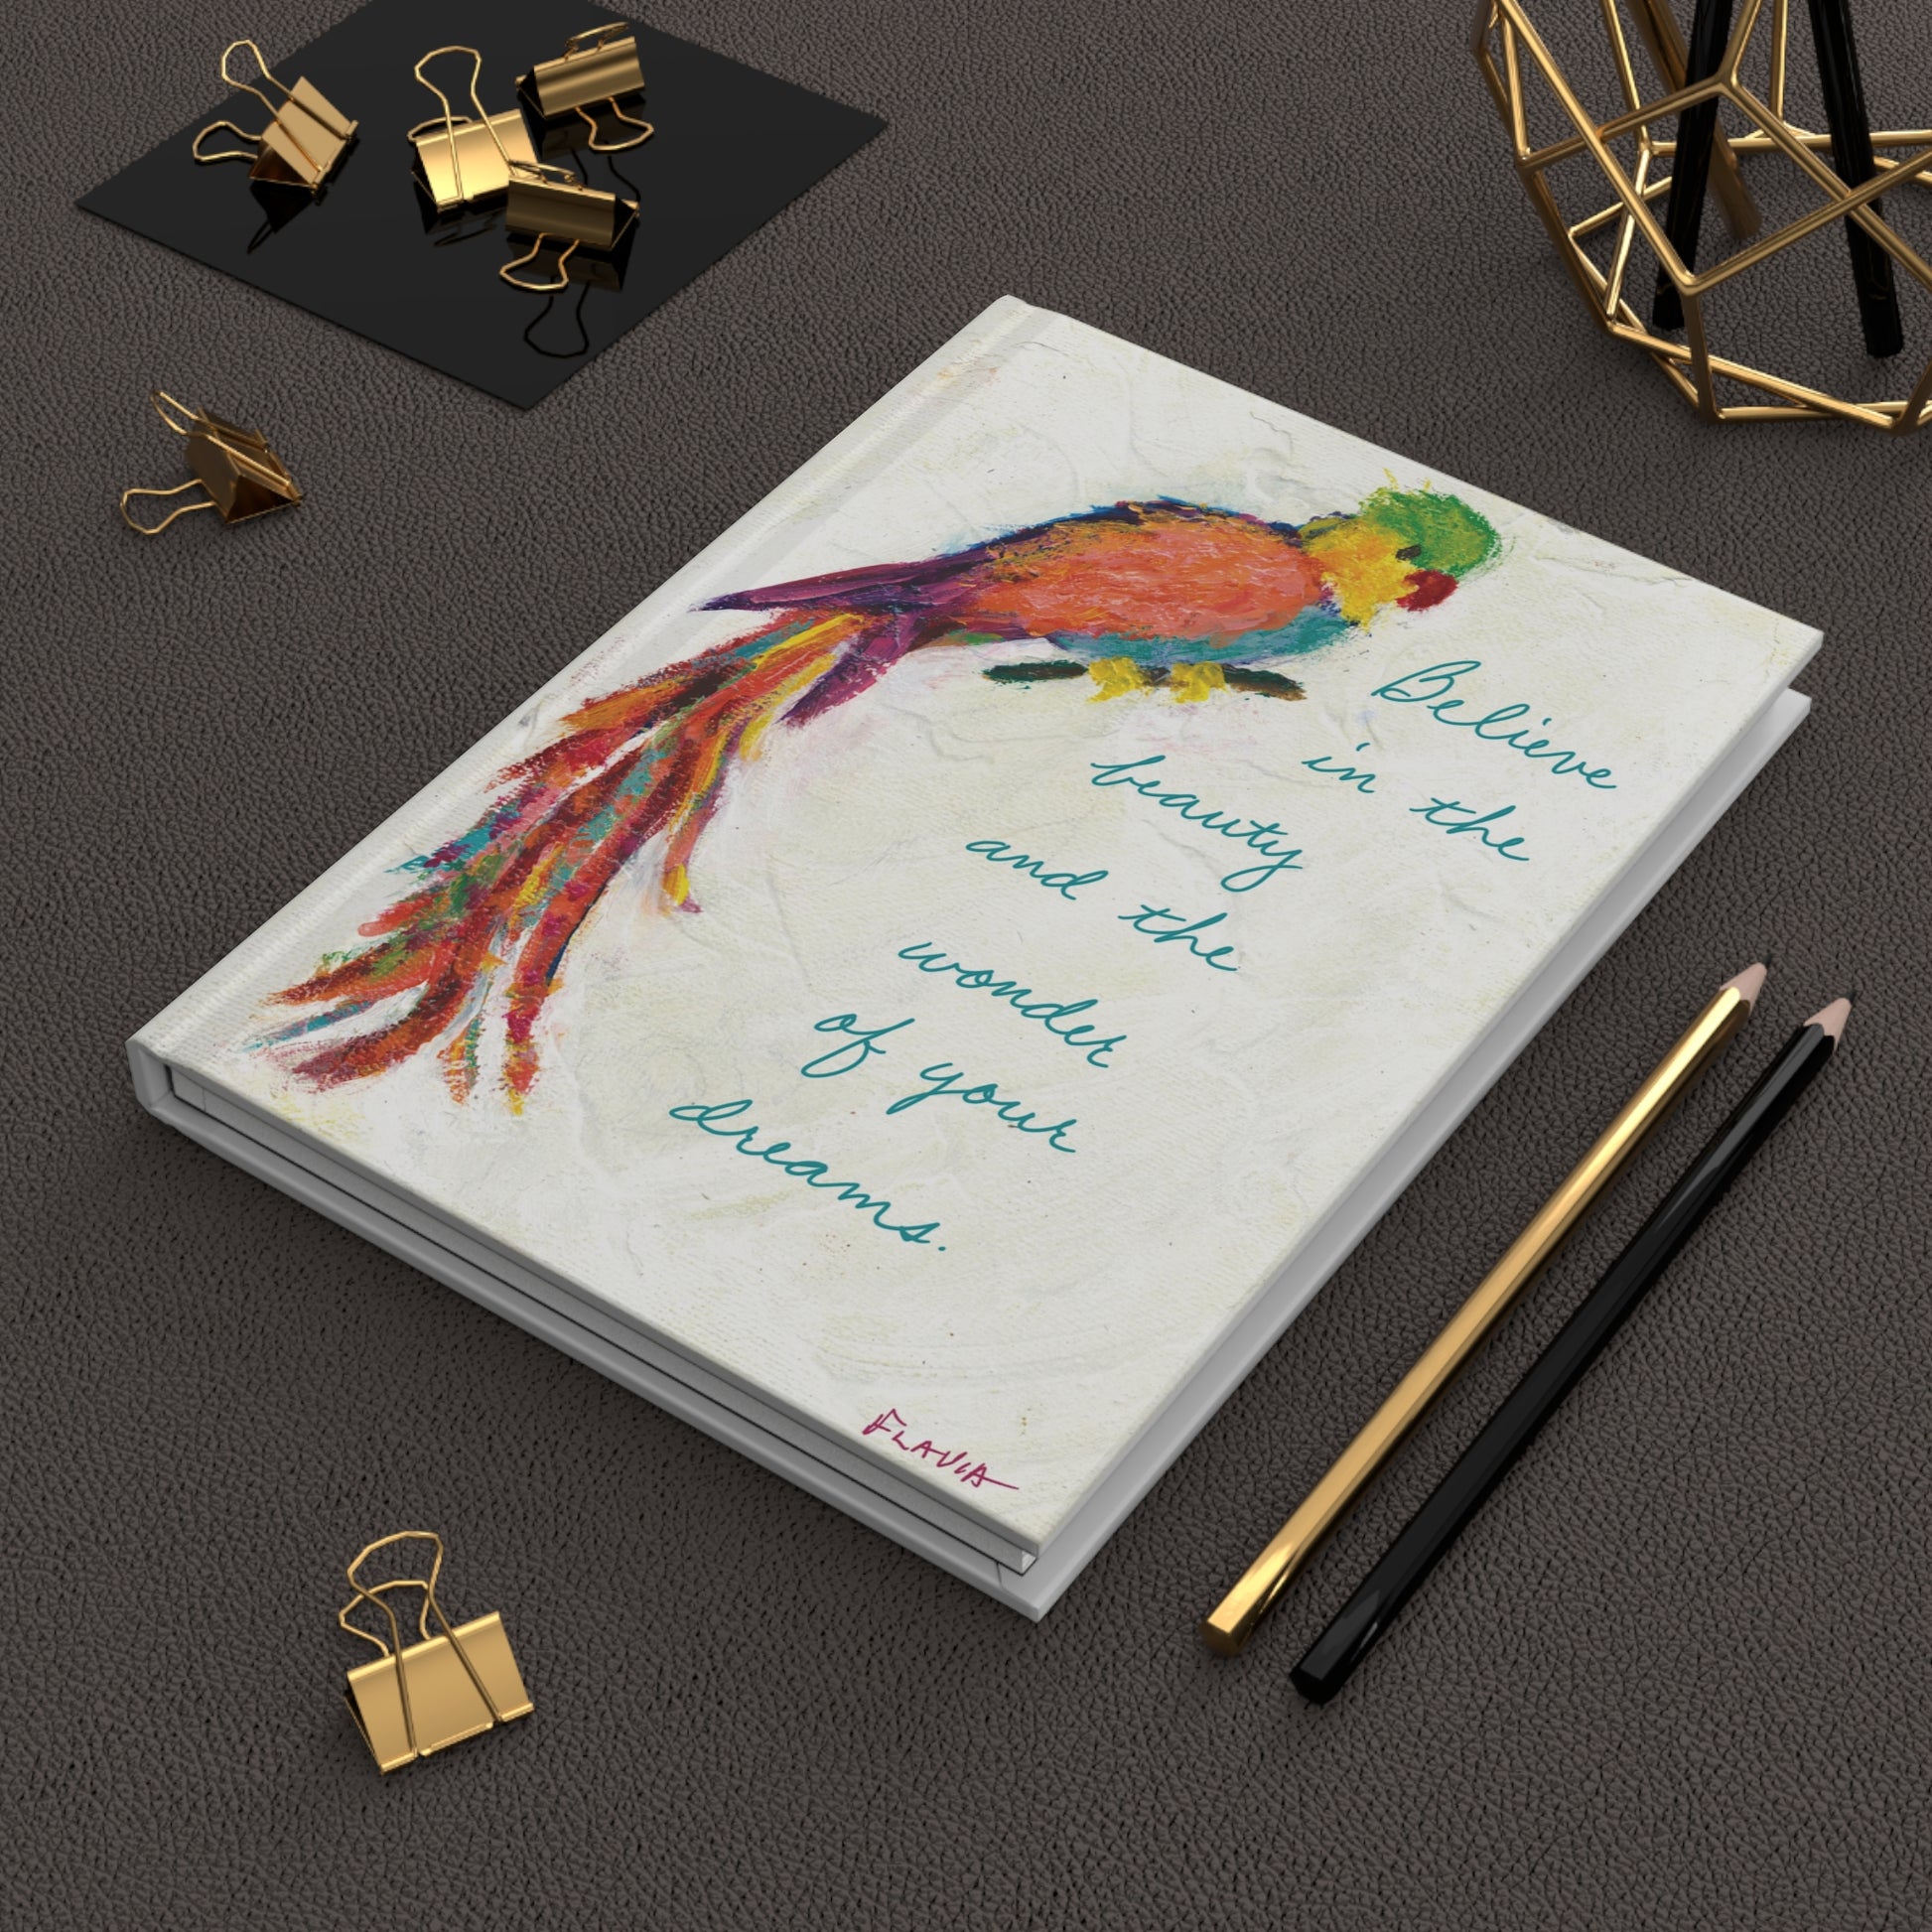 Believe
in the
beauty
and the
wonder
of your
dreams.
FLAVIA